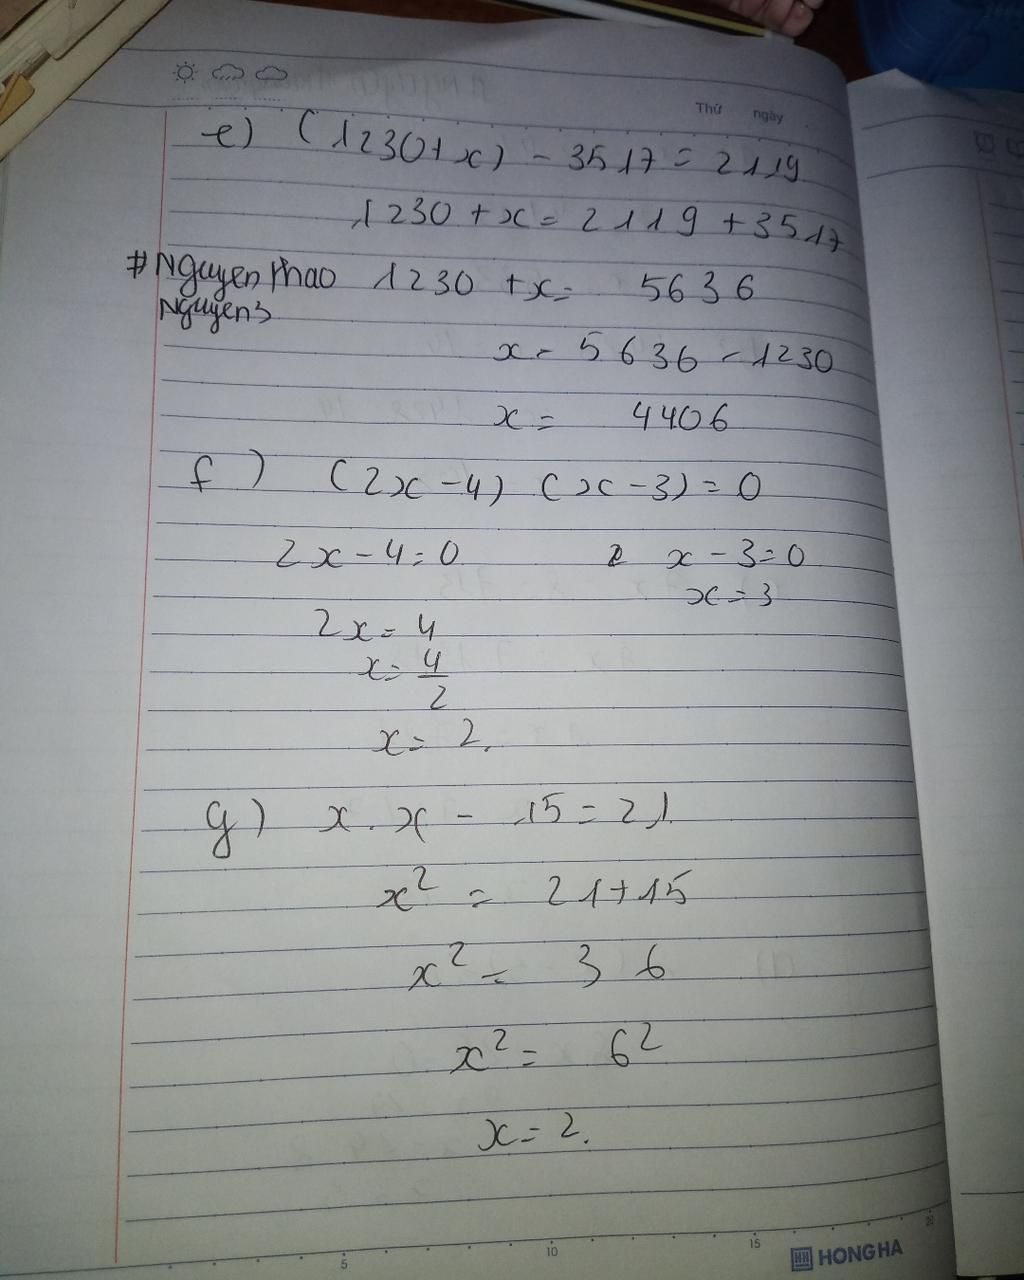 Thứ ngày
e) (1230+x) - 3517 = 2119
1230 + x = 2119 + 3517
#Nguyen thao 1230 + x = 5636
Nguyen3
x = 5636 - 1230
x = 4406
f) (2x - 4) (x - 3) = 0
2x - 4 = 0 x - 3 = 0
x = 3
2x = 4
x = 4/2
x = 2.
g) x . x - 15 = 21
x² = 21 + 15
x² = 36
x² = 6²
x = 2.
5 10 15 20
HONG HA